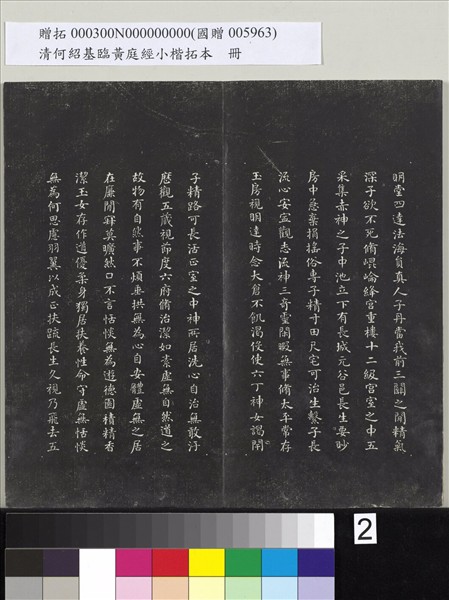 贈拓 000300N000000000(國贈 005963)
清何紹基臨黃庭經小楷拓本 冊
明堂四達法海員真人子丹當我前三關之閒精氣
深子欲不死脩崐崘絳宮重樓十二級宮室之中五
采集赤神之子中池立下有長城元谷邑長生要眇
房中急棄捐搖俗專子精寸田尺宅可治生繫子長
流心安寍觀志流神三奇靈閒暇無事脩太平常存
玉房視明達時念大倉不飢渴役使六丁神女謁閉
子精路可長活正室之中神所居洗心自治無敢汙
歷觀五藏視節度六府脩治潔如素虛無自然道之
故物有自然事不煩垂拱無為心自安體虛無之居
在廉閒寂莫曠然口不言恬惔無為遊德園積精香
潔玉女存作道優柔身獨居扶養性命守虛無恬惔
無為何思慮羽翼以成正扶疏長生久視乃飛去五
2